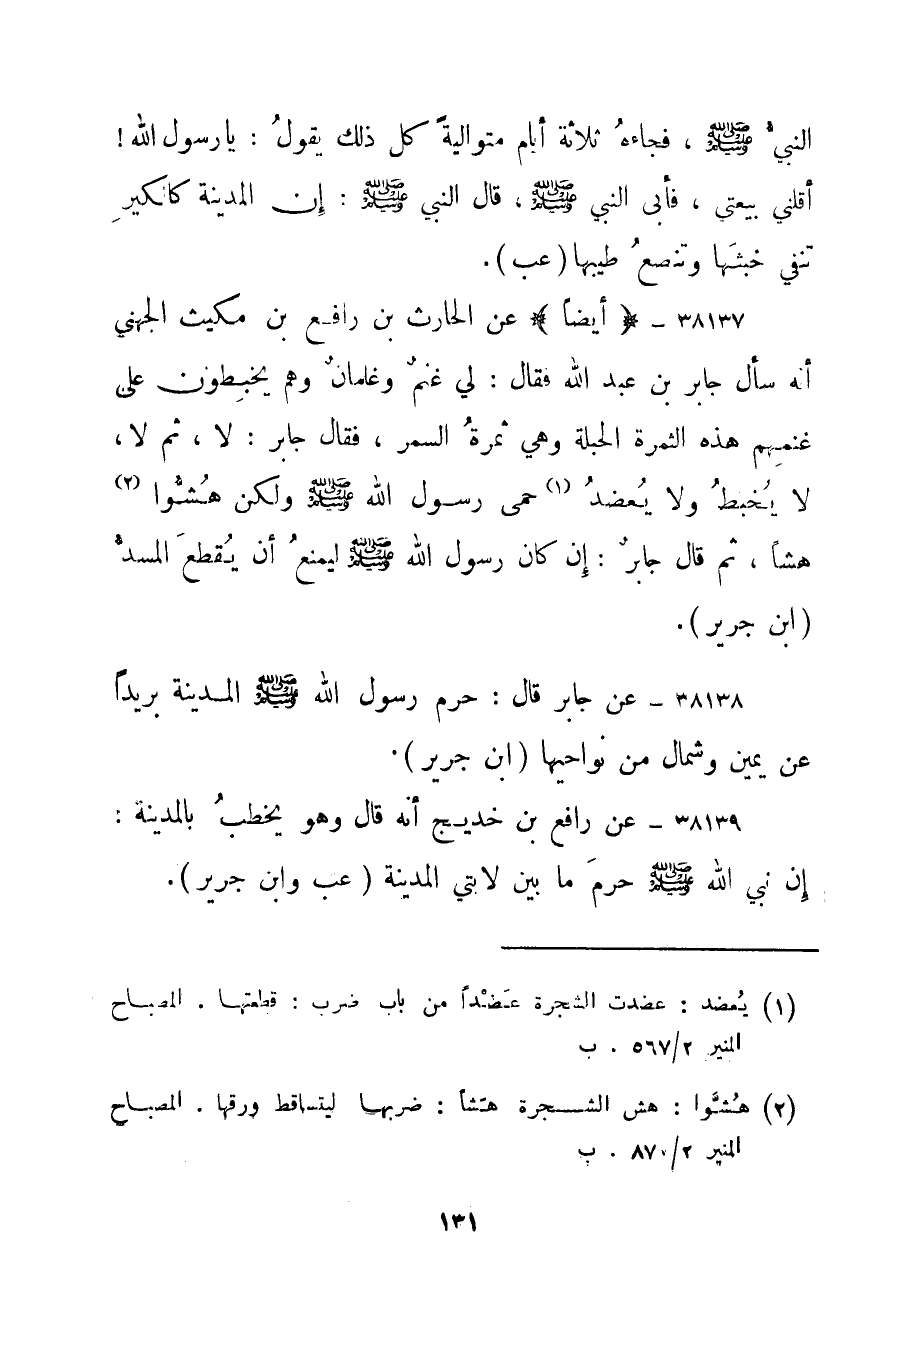 النبيُّ ﷺ ، فجاءهُ ثلاثة أيام متواليةً كل ذلك يقولُ : يارسول الله !
أقلني بيعتي ، فأبى النبي ﷺ ، قال النبي ﷺ : إن المدينة كالكيرِ
تنفي خبثَها وتنصعُ طيبها (عب).
٣٨١٣٧ ـ ﴿ أيضاً ﴾ عن الحارث بن رافع بن مكيث الجهني
أنه سأل جابر بن عبد الله فقال : لي غنمٌ وغلمانٌ وهم يخبِطون على
غنمِهم هذه الثمرة الحبلة وهي ثمرةُ السمر ، فقال جابر : لا ، ثم لا ،
لا يُخبطُ ولا يُعضدُ (١) حمى رسول الله ﷺ ولكن هُشُّوا (٢)
هشاً ، ثم قال جابرٌ : إن كان رسول الله ﷺ ليمنعُ أن يُقطعَ المسدُّ
(ابن جرير).
٣٨١٣٨ ـ عن جابر قال : حرم رسول الله ﷺ المدينة بريداً
عن يمين وشمال من نواحيها (ابن جرير).
٣٨١٣٩ ـ عن رافع بن خديج أنه قال وهو يخطبُ بالمدينة :
إن نبي الله ﷺ حرمَ ما بين لابتي المدينة (عب وابن جرير).
(١) يُعضد : عضدت الشجرة عَضْداً من باب ضرب : قطعتها . المصباح
المنير ٥٦٧/٢ . ب
(٢) هُشُّوا : هش الشجرة هشاً : ضربها ليتساقط ورقها . المصباح
المنير ٨٧٠/٢ . ب
١٣١